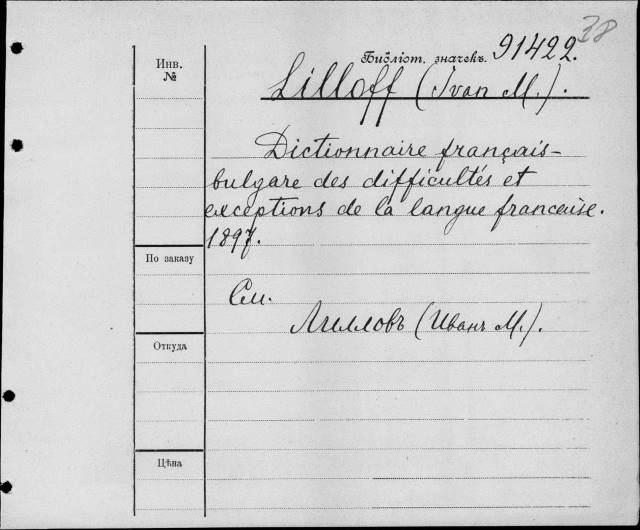 38
Инв. №
Библіот. значекъ. 91422.
Lilloff (Ivan M.).
Dictionnaire français-
bulgare des difficultés et
exceptions de la langue francaise.
1897.
По заказу
См.
Лилловъ (Иванъ М.).
Откуда
Цѣна